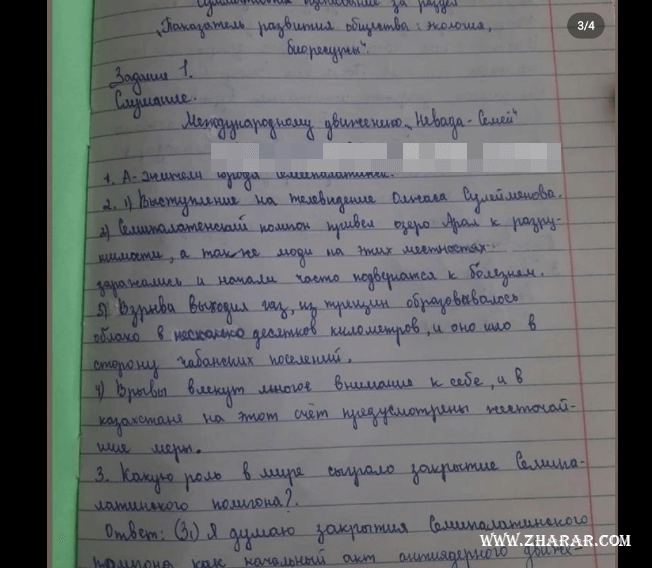 Суммативное оценивание за раздел
„Показатель развития общества: экология,
биоресурсы".
3/4
Задание 1.
Слушание.
Международному движению „Невада-Семей"
1. А-жители города Семипалатинск.
2. 1) Выступление на телевидение Олжаса Сулейменова.
2) Семипалатенский полигон привел озеро Арал к разру-
шимости, а так же люди на этих местностях
заражались и начали часто подвергатся к болезням.
3) Взрыва выходил газ, из трещин образовывалось
облако в несколько десятков километров, и оно шло в
сторону чабанских поселений.
4) Врывы влекут многое внимание к себе, и в
казахстане на этот счёт предусмотрены жесточай-
шие меры.
3. Какую роль в мире сыграло закрытие Семипа-
латинского полигона?.
Ответ: (3.) Я думаю закрытия Семипалатинского
полигона как начальный акт антиядерного движе-
WWW.ZHARAR.COM